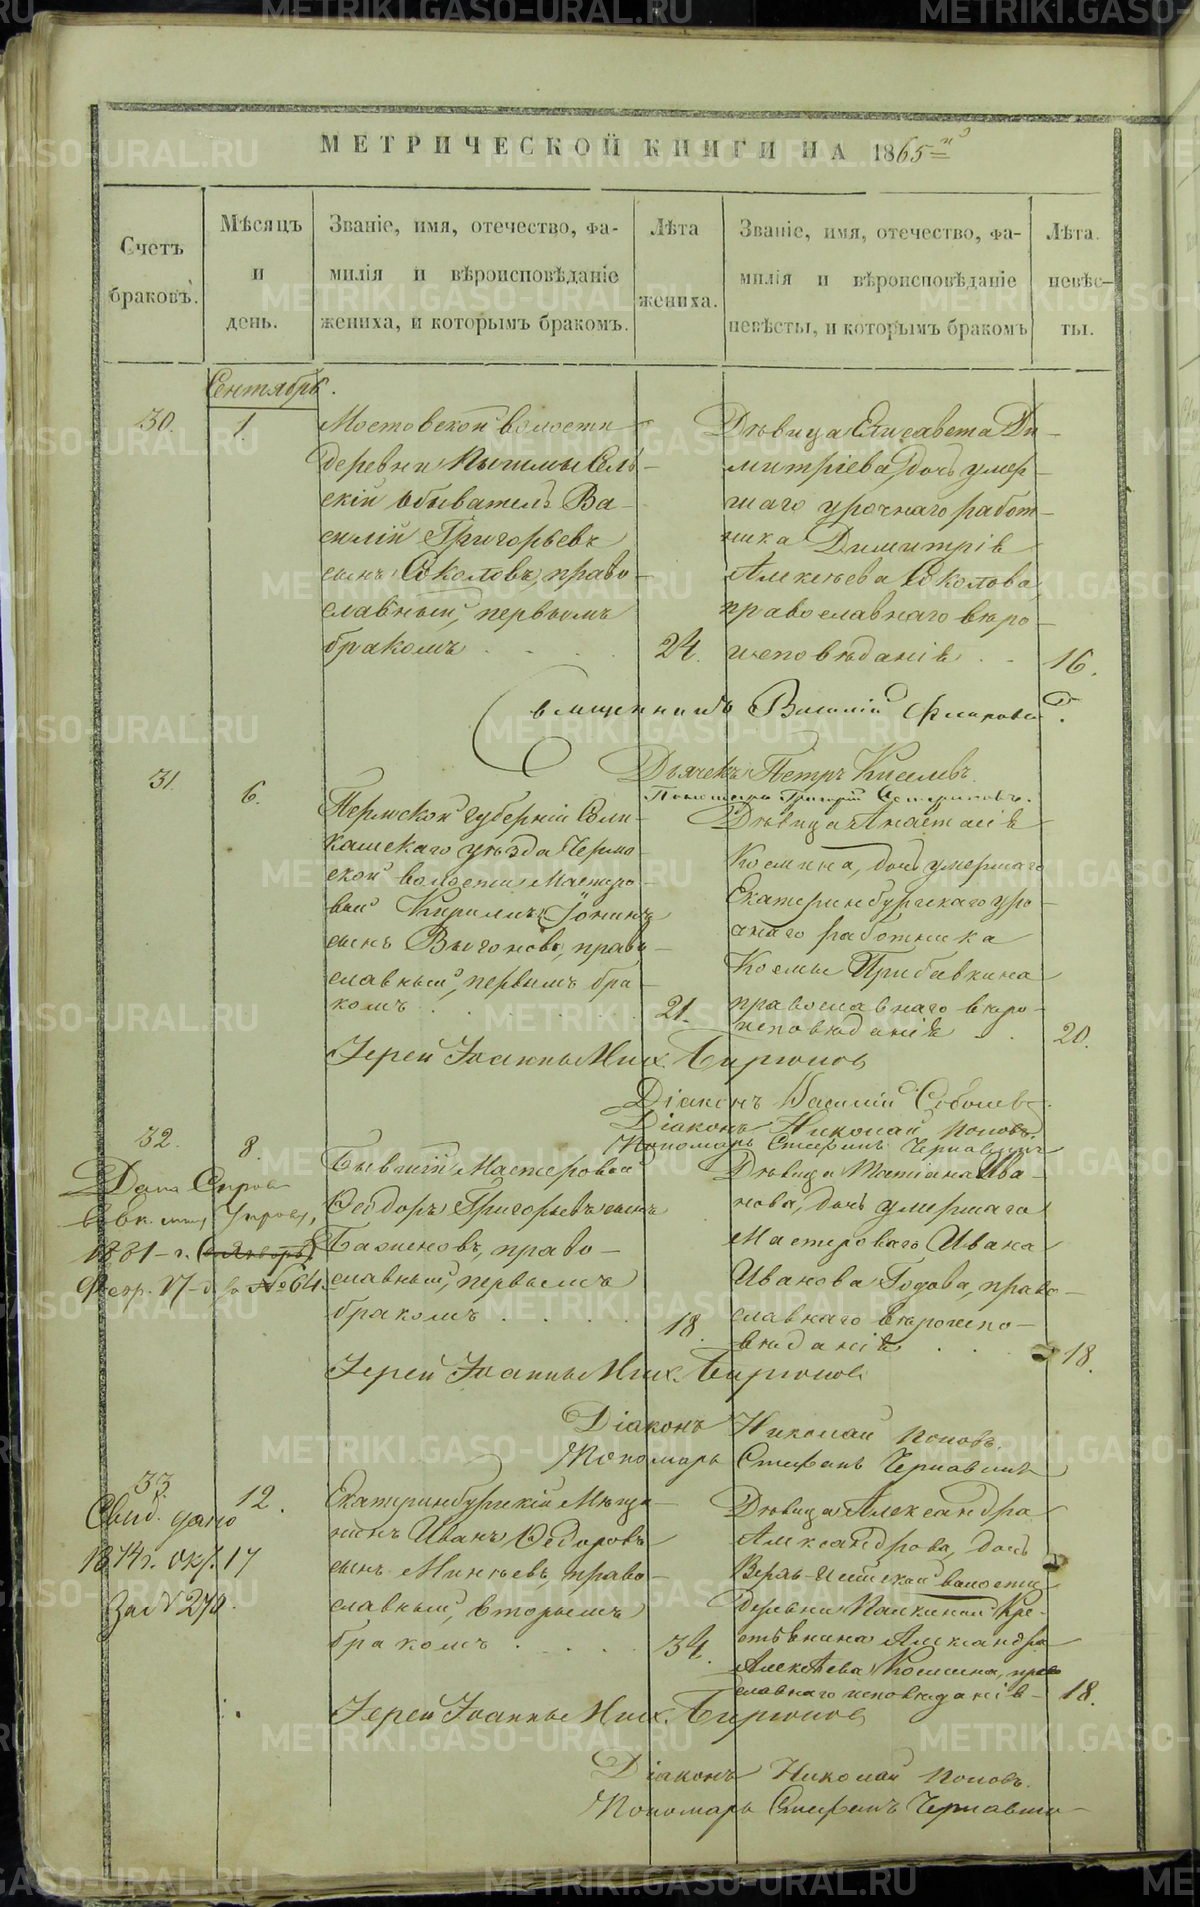 МЕТРИЧЕСКОЙ КНИГИ НА 1865й
Счетъ браковъ.
Мѣсяцъ и день.
Званіе, имя, отечество, фамилія и вѣроисповѣданіе жениха, и которымъ бракомъ.
Лѣта жениха.
Званіе, имя, отечество, фамилія и вѣроисповѣданіе невѣсты, и которымъ бракомъ
Лѣта невѣсты.
Сентябрь.
30.
1.
Мостовской волости
деревни Пышмы Сель-
скій обыватель Ва-
силій Григорьевъ
сынъ Соколовъ, право-
славный, первымъ
бракомъ
24.
Дѣвица Елисавета Ди-
митріева, дочь умер-
шаго урочнаго работ-
ника Димитрія
Алексѣева Соколова,
православнаго вѣро-
исповѣданія
16.
Священникъ Василій
Дьячекъ Петръ Киселевъ.
Пономарь Григорій
31.
6.
Пермской губерніи Соли-
камскаго уѣзда Чермо-
ской волости Мастеро-
вой Кириллъ Іонинъ
сынъ Выгоновъ, право-
славный, первымъ бра-
комъ
21.
Дѣвица Анастасія
Космина, дочь умершаго
Екатеринбургскаго уро-
чнаго работника
Космы Прибавкина
православнаго вѣро-
исповѣданія
20.
Іерей Іоаннъ Ник. Бирюков
Діаконъ Василій Соболевъ.
Діаконъ Николай Поповъ.
Пономарь Стефанъ Чернавинъ
32.
8.
Дана Справ
1881-г.
Февр. 17-д. за №64.
Бывшій Мастеровой
Ѳеодоръ Григорьевъ сынъ
Баженовъ, право-
славный, первымъ
бракомъ
18.
Дѣвица Татіана Ива-
нова, дочь умершаго
Мастероваго Ивана
Иванова Годова, право-
славнаго вѣроиспо-
вѣданія
18.
Іерей Іоаннъ Ник. Бирюков
Діаконъ Николай Поповъ.
Пономарь Стефанъ Чернавинъ
33.
12.
Свид. дано
1874г. окт. 17
За №270.
Екатеринбургскій Мѣща-
нинъ Иванъ Ѳедоровъ
сынъ Минѣевъ, право-
славный, вторымъ
бракомъ
34.
Дѣвица Александра
Александрова, дочь
Верхъ-Исетской волости
деревни Палкиной Кре-
стьянина Александра
Алексѣева Кошкина, право
славнаго исповѣданія-
18.
Іерей Іоаннъ Ник. Бирюков
Діаконъ Николай Поповъ.
Пономарь Стефанъ Чернавин-
METRIKI.GASO-URAL.RU